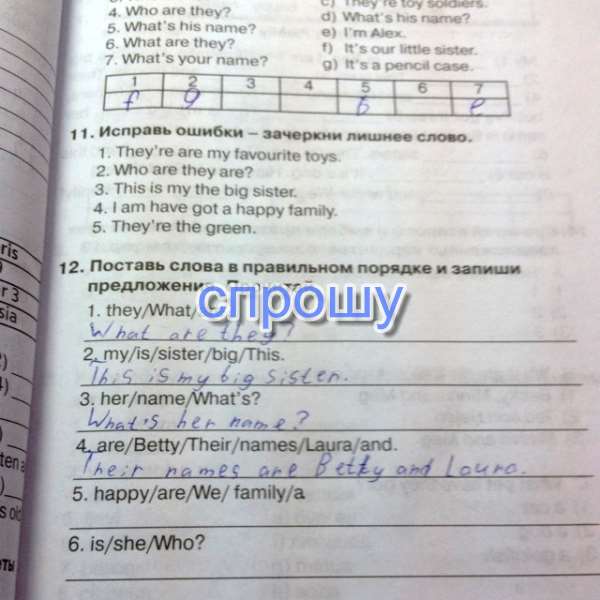 4. Who are they?
5. What's his name?
6. What are they?
7. What's your name?
c) They're toy soldiers.
d) What's his name?
e) I'm Alex.
f) It's our little sister.
g) It's a pencil case.
1 2 3 4 5 6 7
f g b e
11. Исправь ошибки – зачеркни лишнее слово.
1. They're are my favourite toys.
2. Who are they are?
3. This is my the big sister.
4. I am have got a happy family.
5. They're the green.
12. Поставь слова в правильном порядке и запиши
предложения.
спрошу
1. they/What/
What are they?
2. my/is/sister/big/This.
This is my big sister.
3. her/name/What's?
What's her name?
4. are/Betty/Their/names/Laura/and.
Their names are Betty and Laura.
5. happy/are/We/ family/a
6. is/she/Who?